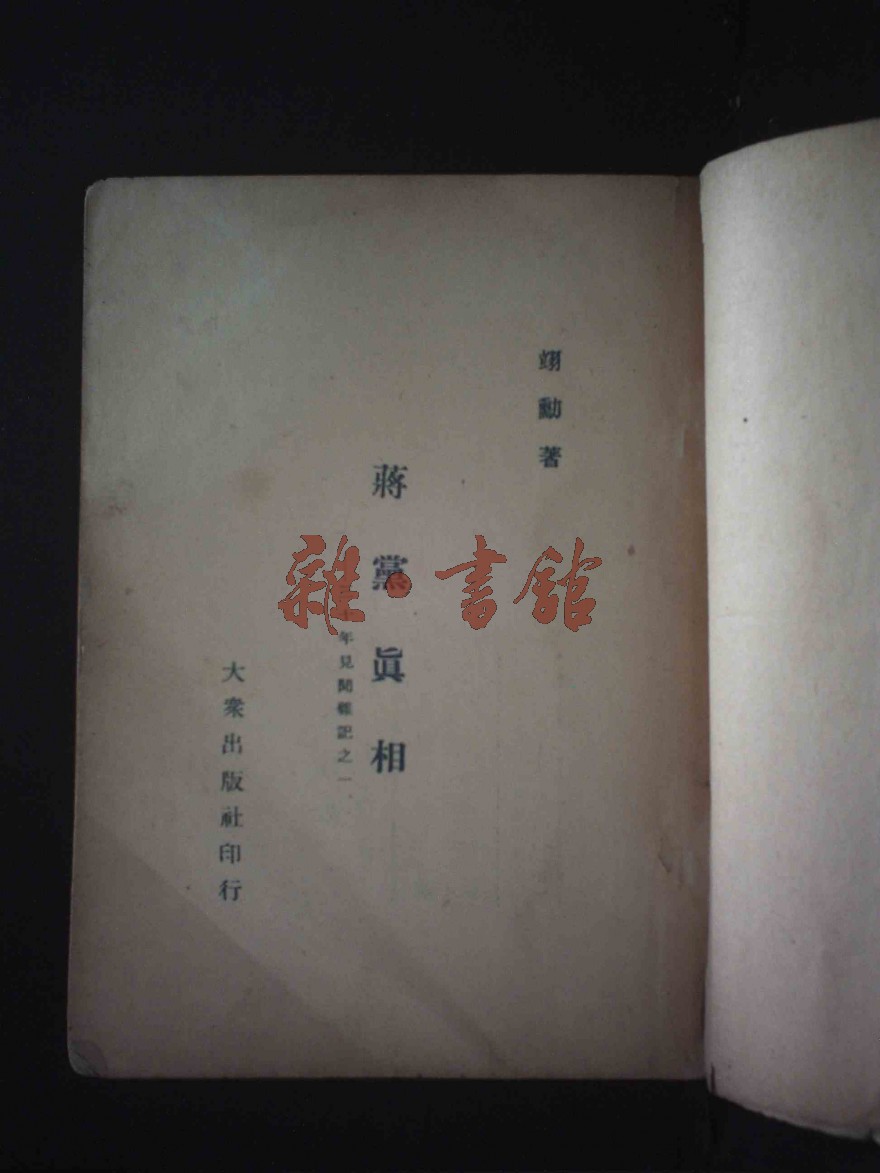 翊勳著
蔣黨眞相
年見聞雜記之一
大衆出版社印行
雜·書館